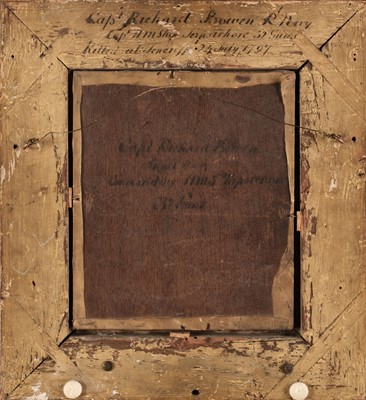 Capt Richard Bowen Rl Navy
Capt HMShip Terpsichore 32 Guns
Killed at Teneriffe 24 July 1797
Capt Richard Bowen
Commanding HMS Terpsichore
32 Guns